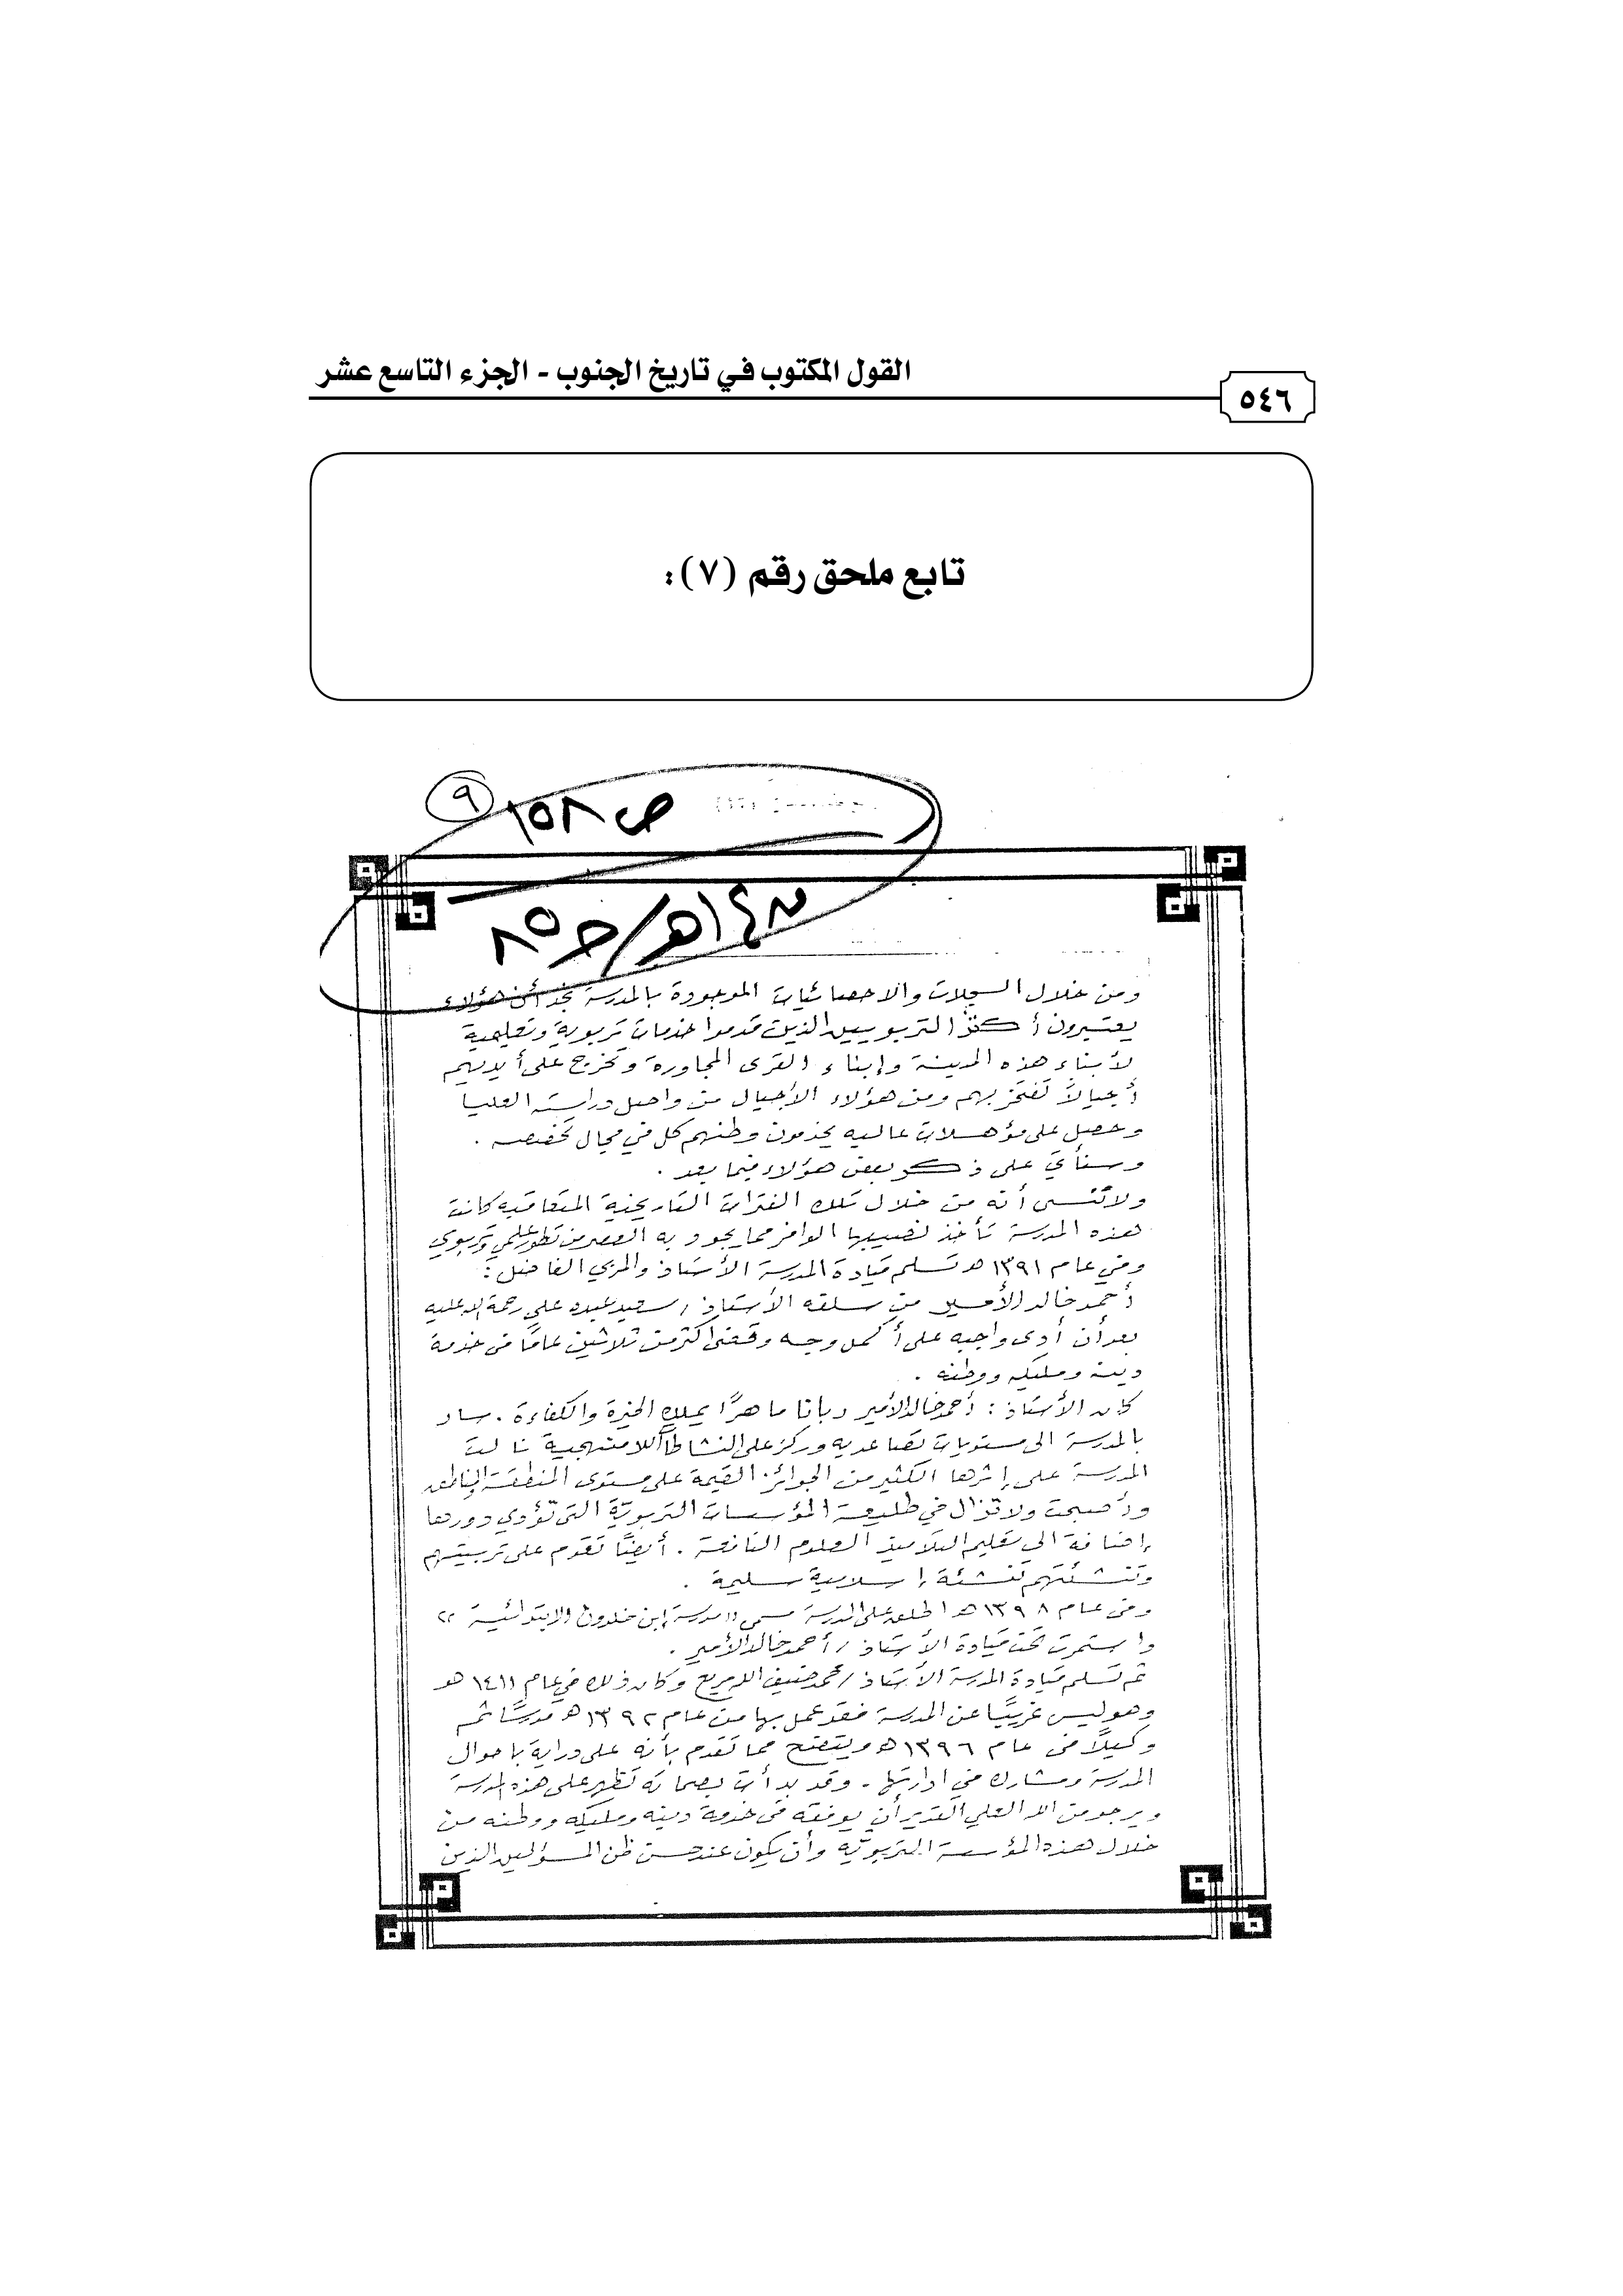 القول المكتوب في تاريخ الجنوب - الجزء التاسع عشر
٥٤٦
تابع ملحق رقم (٧):
٩
ص ١٥٨
ومن خلال السجلات والاحصائيات الموجودة بالمدرسة نجد أن هؤلاء
يعتبرون أكفأ التربويين الذين قدموا خدمات تربوية وتعليمية
لأبناء هذه المدينة وأبناء القرى المجاورة وتخرج على أيديهم
أجيالاً نفتخر بهم ومن هؤلاء الأجيال من واصل دراسته العليا
وحصل على مؤهلات عاليه يخدمون وطنهم كل في مجال تخصصه .
وسنأتي على ذكر بعض هؤلاء فيما بعد .
ولا ننسى أنه من خلال تلك الفترات التاريخية المتعاقبه كانت
هذه المدرسة تأخذ نصيبها الوافر مما يجود به العصر من تطور علمي وتربوي
وفي عام ١٣٩١ هـ تسلم قيادة المدرسة الأستاذ والمربي الفاضل :
أحمد خالد الأمير من سلفه الأستاذ / سعيد عبده علي رحمة الله عليه
بعد أن أدى واجبه على أكمل وجه وقضى أكثر من ثلاثين عامًا في خدمة
دينه ومليكه ووطنه .
كان الأستاذ : أحمد خالد الأمير ربانا ماهرًا يملك الخبرة والكفاءة . سار
بالمدرسة الى مستويات تصاعديه وركز على النشاطات اللامنهجية نالت
المدرسة على إثرها الكثير من الجوائز القيمة على مستوى المنطقة والمناطق
وأصبحت ولا تزال في طليعة المؤسسات التربويّة التى تؤدي دورها
إضافة الى تعليم التلاميذ العلوم النافعة . أيضًا تقوم على تربيتهم
وتنشئتهم تنشئة إسلامية سليمة .
وفى عام ١٣٩٨ هـ اطلق على المدرسة مسمى "مدرسة ابن خلدون الابتدائية"
واستمرت تحت قيادة الأستاذ / أحمد خالد الأمير .
ثم تسلم قيادة المدرسة الأستاذ / محمد ضيف الله وكان ذلك في عام ١٤١١ هـ
وهو ليس غريبًا عن المدرسة فقد عمل بها من عام ١٣٩٢ هـ مدرسًا ثم
وكيلاً فى عام ١٣٩٦ هـ ويتضح مما تقدم بأنه على دراية باحوال
المدرسة ومشارك في ادارتها . وقد بدأت بصماته تظهر على هذه المدرسة
ويرجو من الله العلي القدير أن يوفقه فى خدمة دينه ومليكه ووطنه من
خلال هذه المؤسسة التربويّه وأن يكون عند حسن ظن المسؤلين الذين